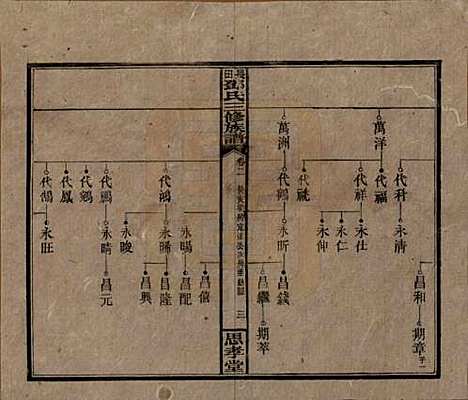 萬洋
代科
永清
昌和
期章
子一
代福
代祥
永仕
永仁
永仲
代祝
萬洲
代鶴
永昕
昌錢
期萃
昌繼
長田鄧氏三修族譜
卷二
三
思孝堂
代鴻
永暘
昌僖
昌配
永晞
昌隆
昌興
永晙
代鵬
永晴
昌元
代鵷
代鳳
代鵠
永旺